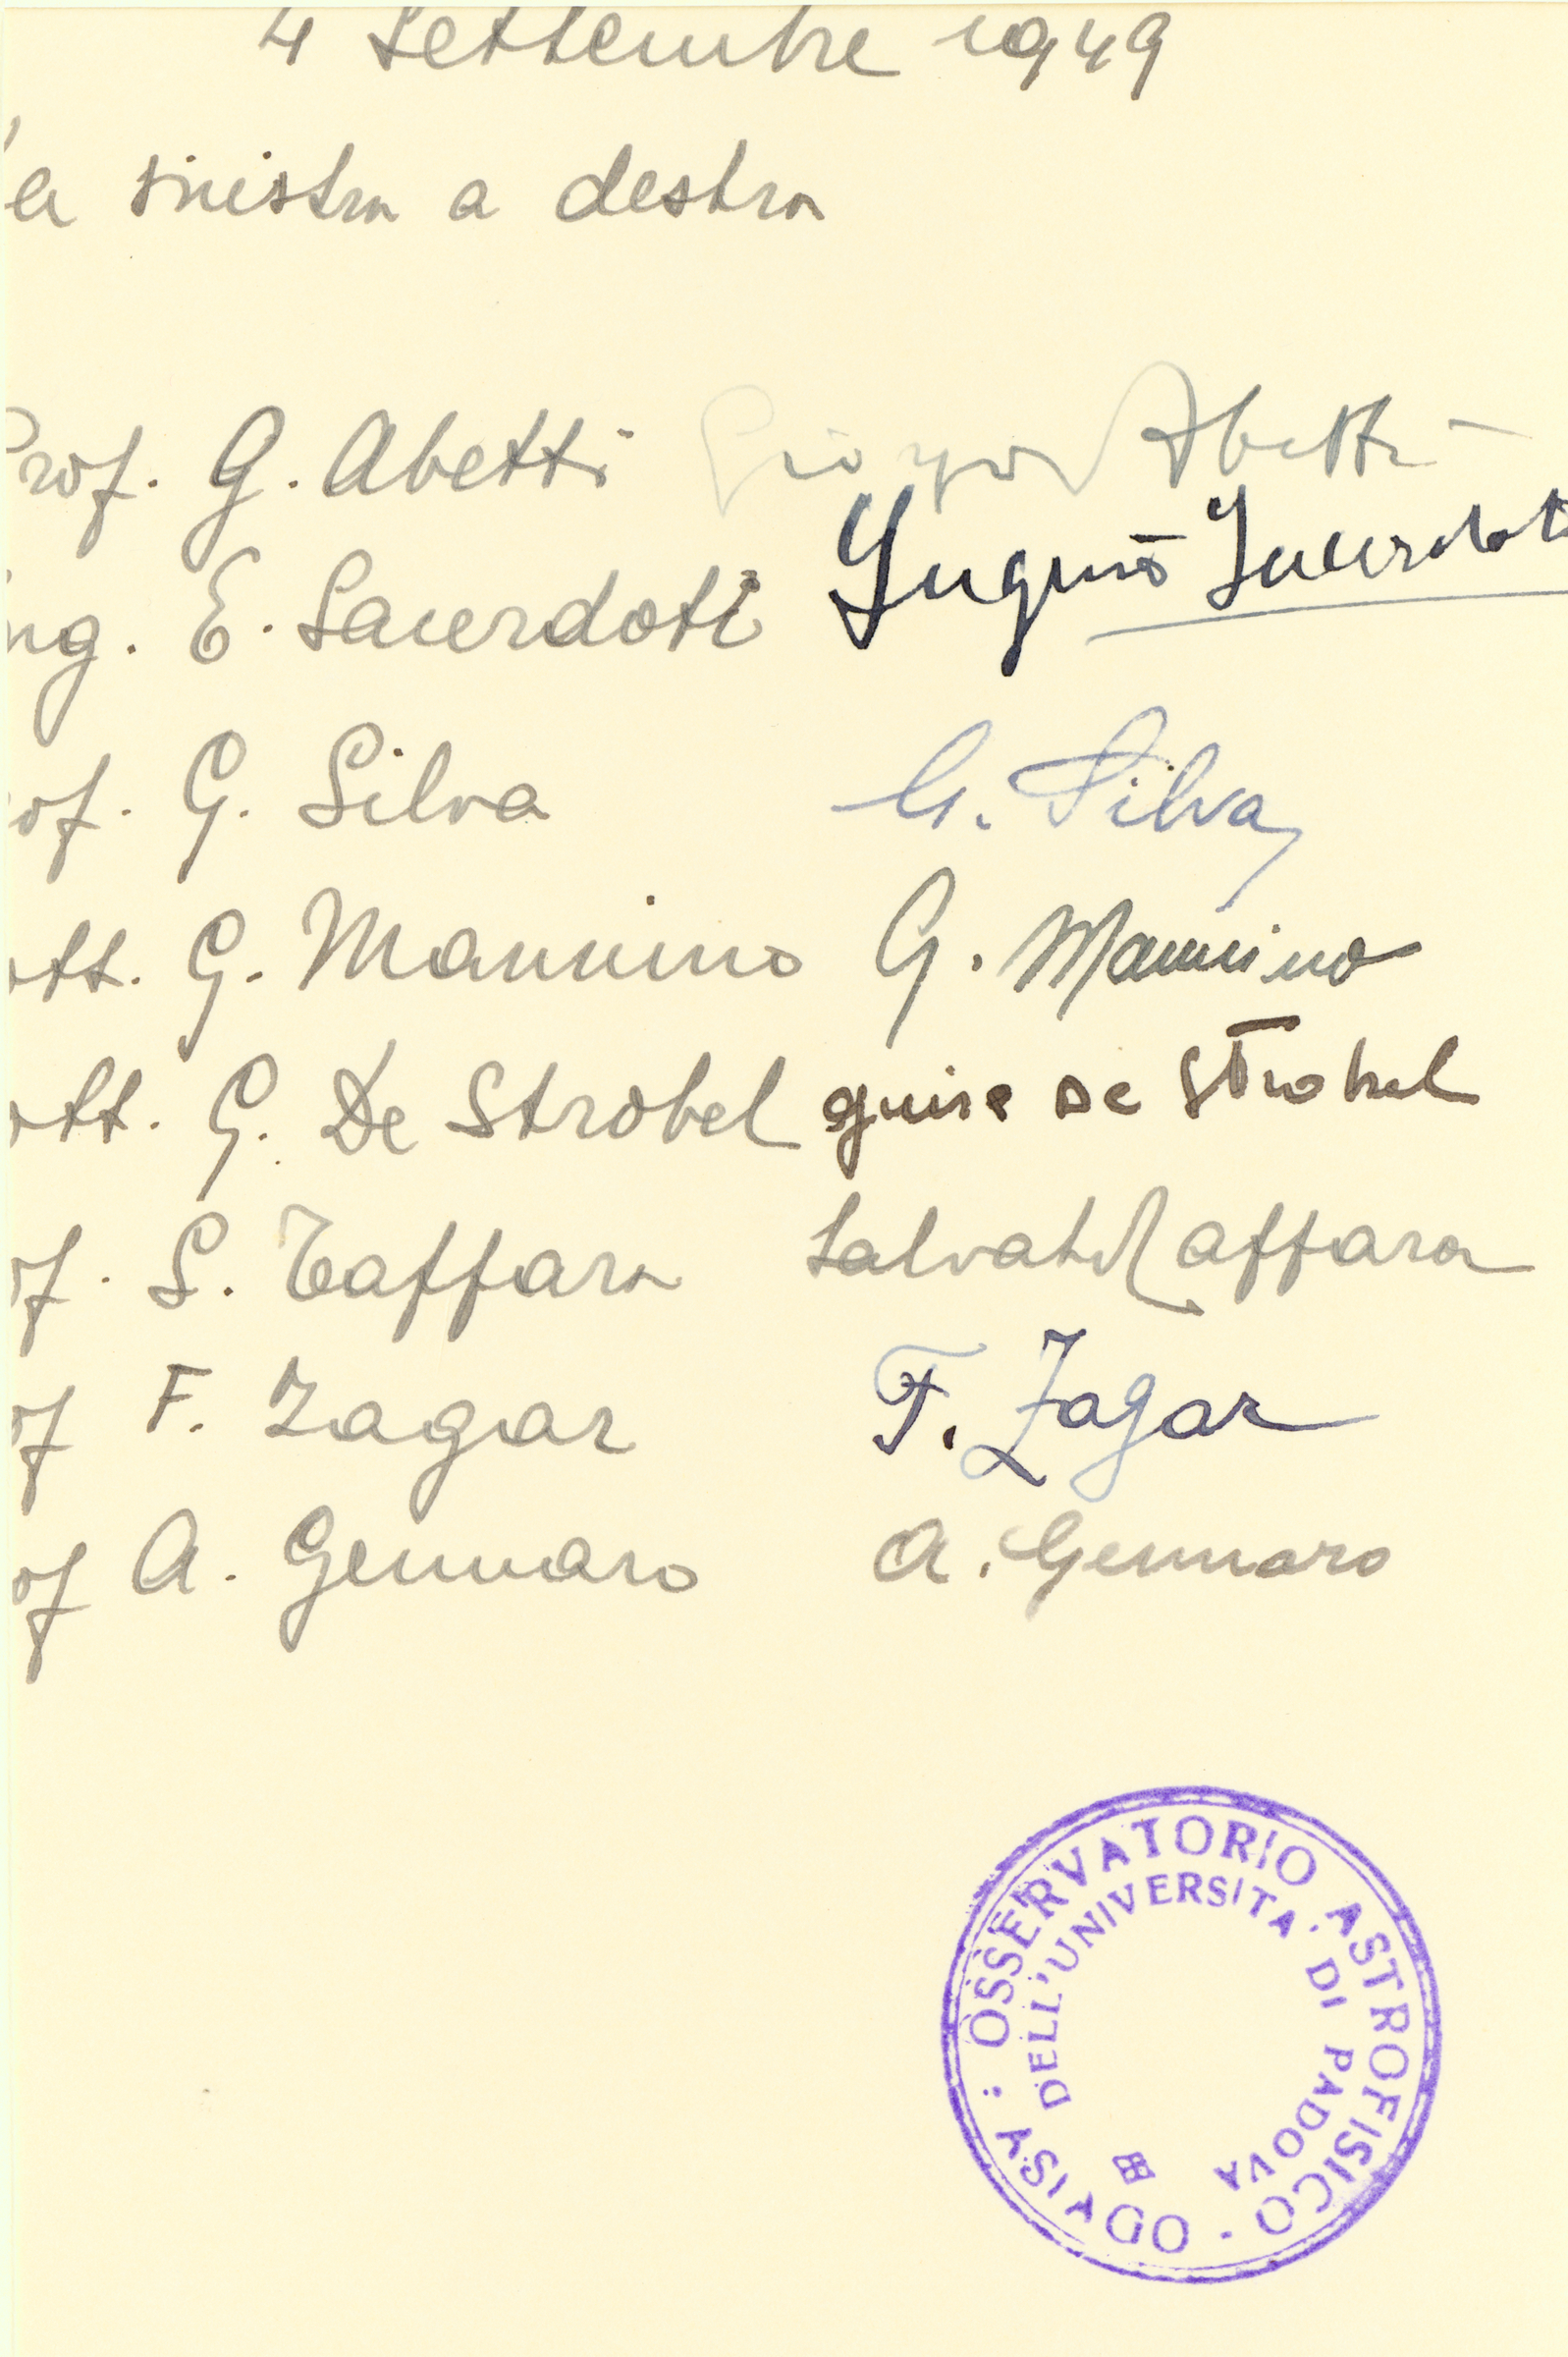 4 Settembre 1949
a sinistra a destra
Prof. G. Abetti Giorgio Abetti
ng. E. Sacerdoti Eugenio Sacerdoti
of. G. Silva G. Silva
ott. G. Mannino G. Mannino
ott. G. De Strobel De Strobel
of. S. Taffara Salvat Taffara
of F. Zagar F. Zagar
of A. Gennaro A. Gennaro
: OSSERVATORIO ASTROFISICO · ASIAGO
DELL'UNIVERSITA' DI PADOVA